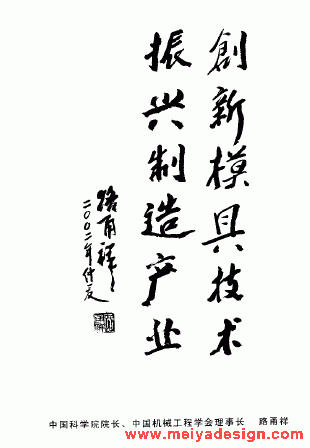 創新模具技术
振兴制造产业
路甬祥
二〇〇二年仲夏
中国科学院院长、中国机械工程学会理事长 路甬祥
www.meiyadesign.com